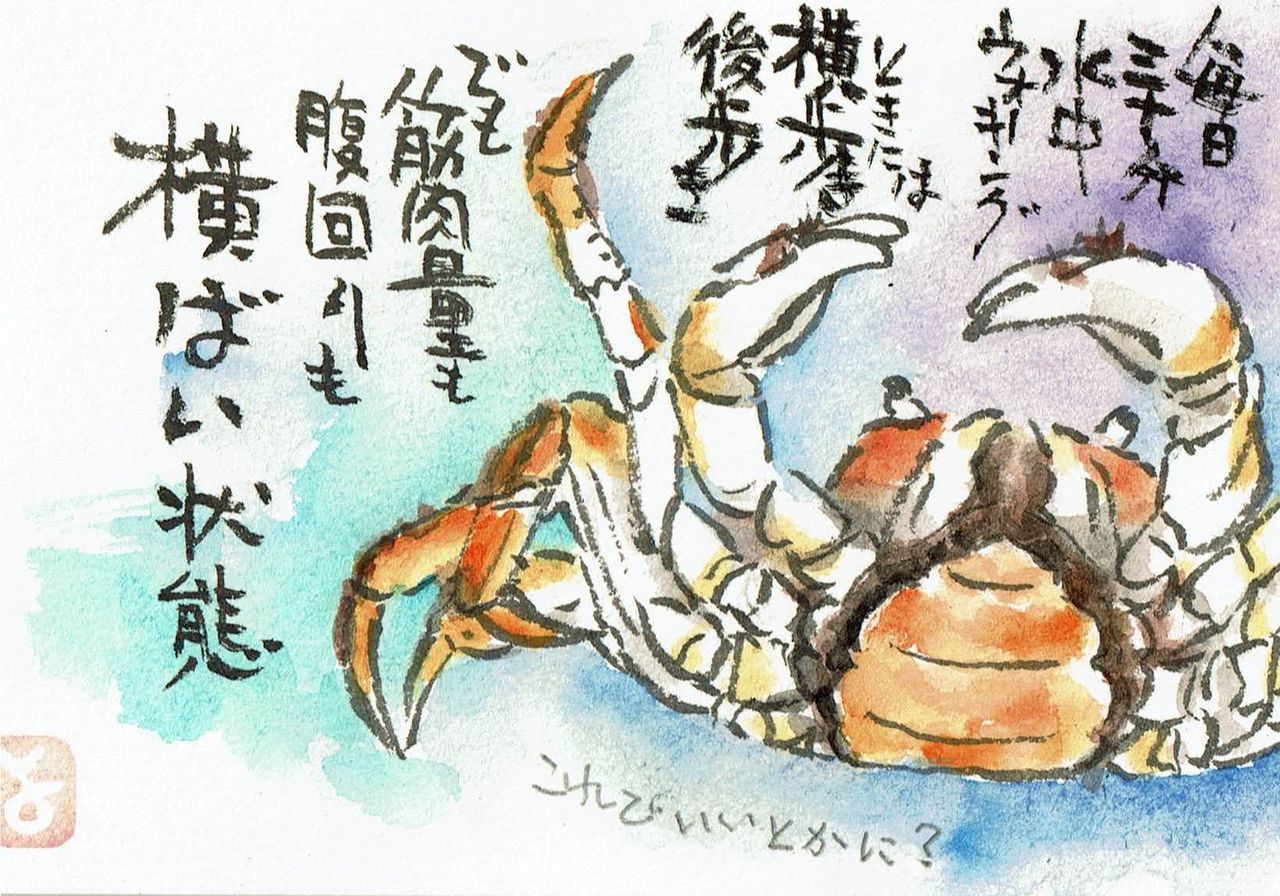 毎日
三十分
水中
ウオーキング
ときには
横歩き
後歩き
でも
筋肉量も
腹回りも
横ばい状態
これでいいとかに?